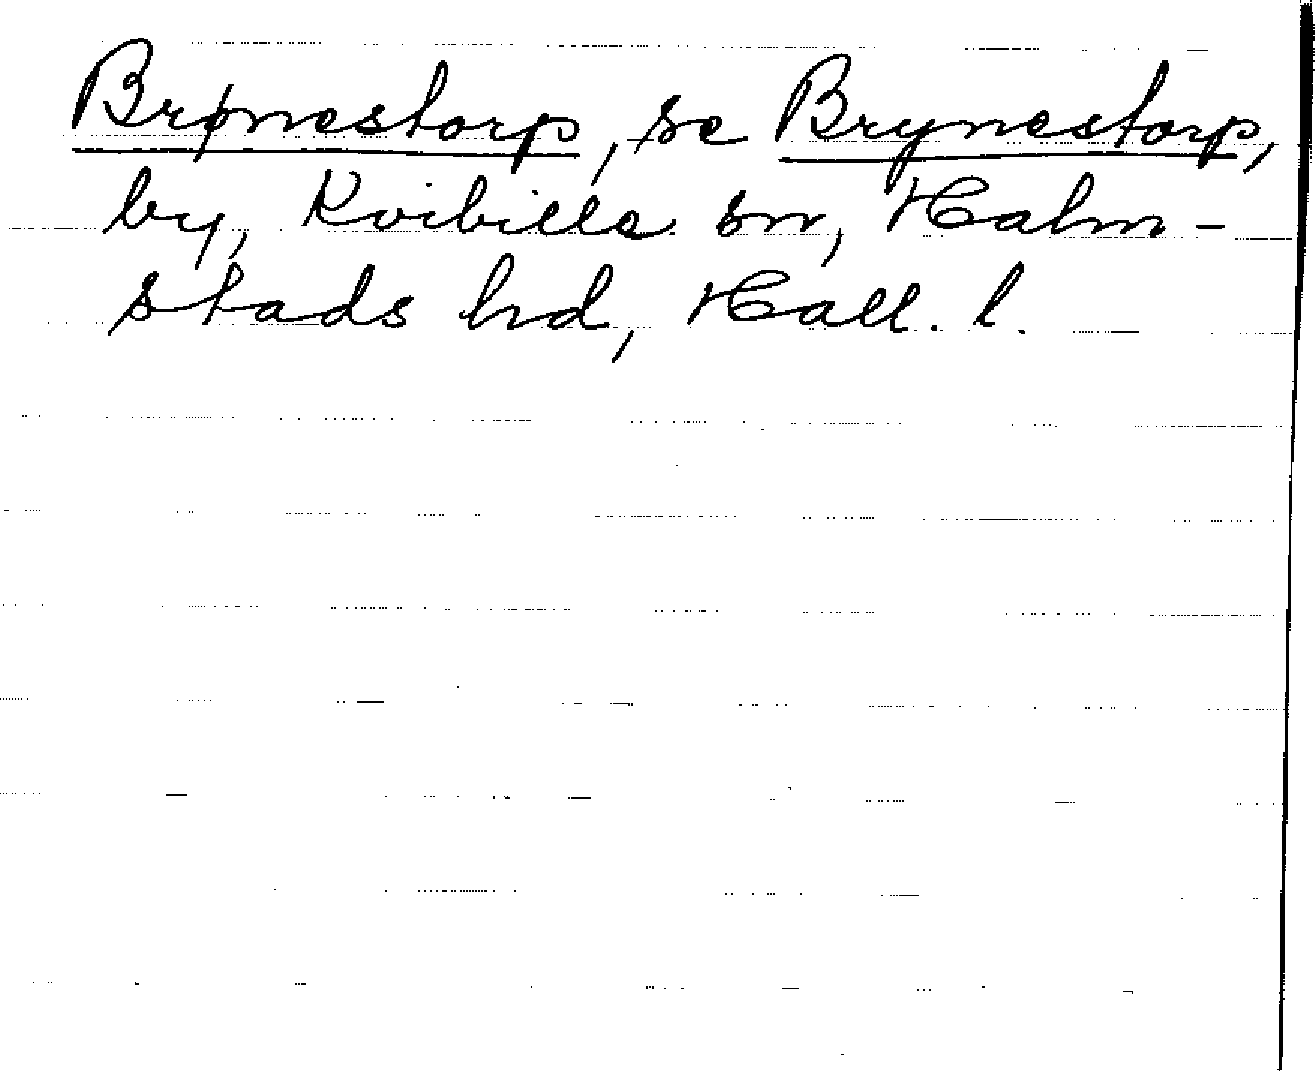 Brønestorp, se Brynestorp,
by, Kvibille sn, Halm-
stads hd, Hall. l.